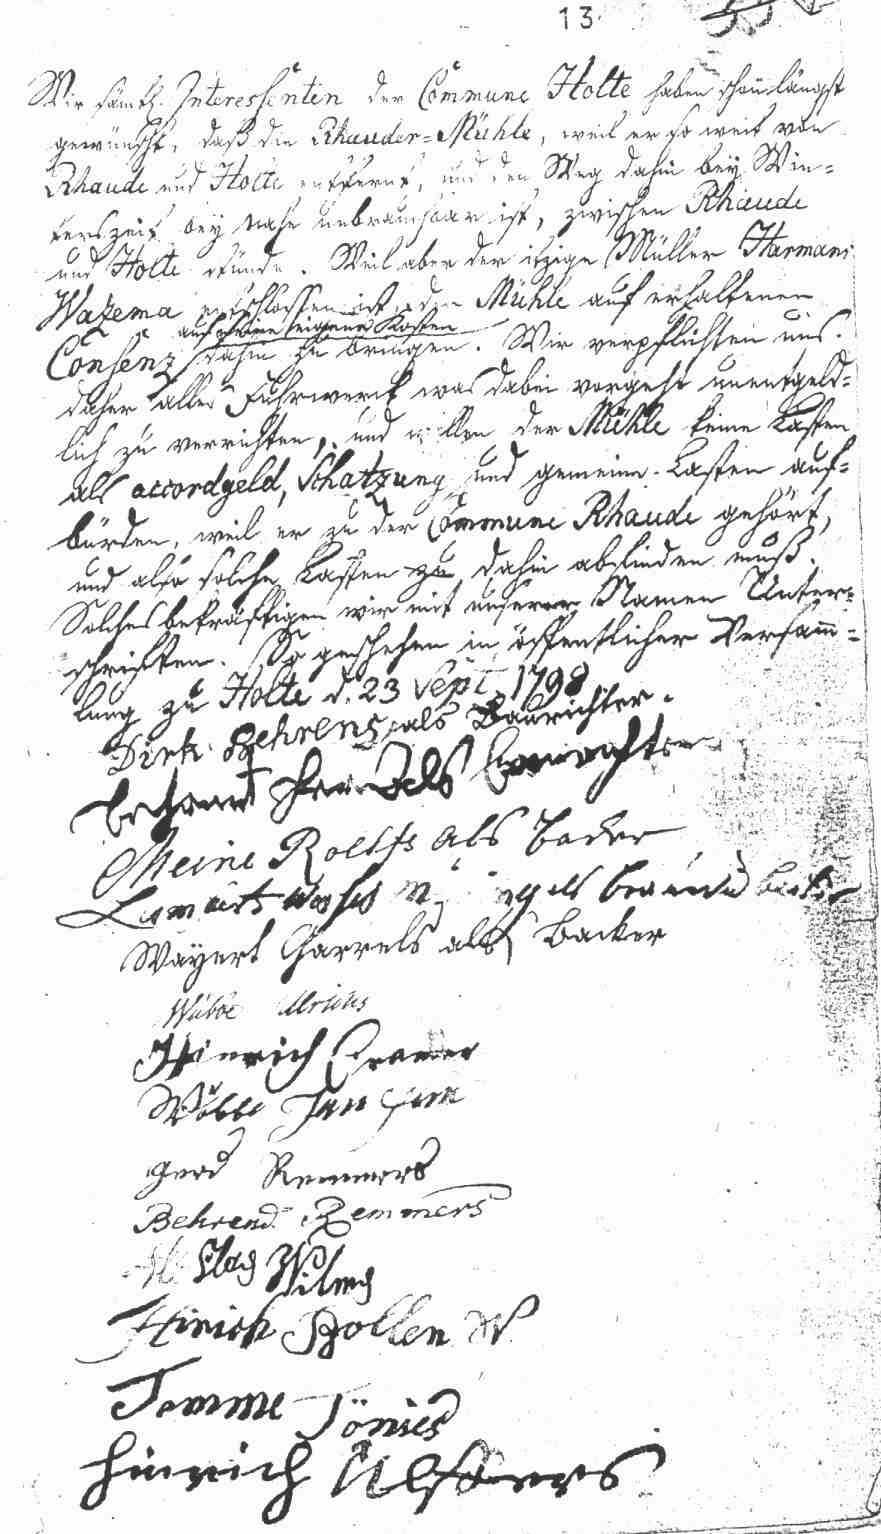 13
Wir sämtl. Interessenten der Commune Holte haben schon längst
gewünscht, daß die Rhauder-Mühle, weil er so weit von
Rhaude und Holte entfernt, und den Weg dahin bey Win-
terszeit bey nahe unbrauchbar ist, zwischen Rhaude
und Holte stünde. Weil aber der itzige Müller Harmans
Wazema entschlossen ist, die Mühle auf erhaltenen
auf seine eigene Kosten
Consenz dahin zu bringen. Wir verpflichten uns
daher alles Fuhrwerck was dabei vorgeht unentgeld-
lich zu verrichten, und wollen der Mühle keine Lasten
als accordgeld, Schatzung und gemeine Lasten auf-
bürden, weil er zu der Commune Rhaude gehört,
und also solche Lasten zu dahin abfinden muß.
Solches bekräftigen wir mit unserer Namen Unter-
schriften. So geschehen in öffentlicher Versam-
lung zu Holte d. 23 Sept 1798
Dirk Behrens als Baurichter.
als
Meine Roelfs als
als
Wayert Garrels als Backer
Wübbe
Hinrich Cramer
Wübbe Janssen
Gerd Remmers
Behrend Remmers
Wilms
Hinrich Bollen W
Temme Tönies
Hinrich